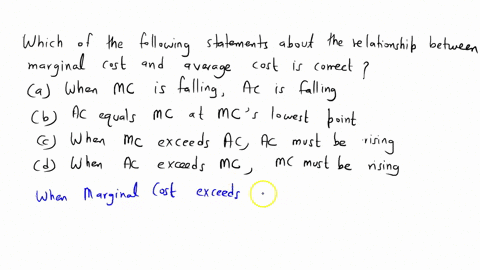 Which of the following statements about the relationship between
marginal cost and average cost is correct?
(a) When MC is falling, AC is falling
(b) AC equals MC at MC's lowest point
(c) When MC exceeds AC, AC must be rising
(d) When AC exceeds MC, MC must be rising
When Marginal Cost exceeds